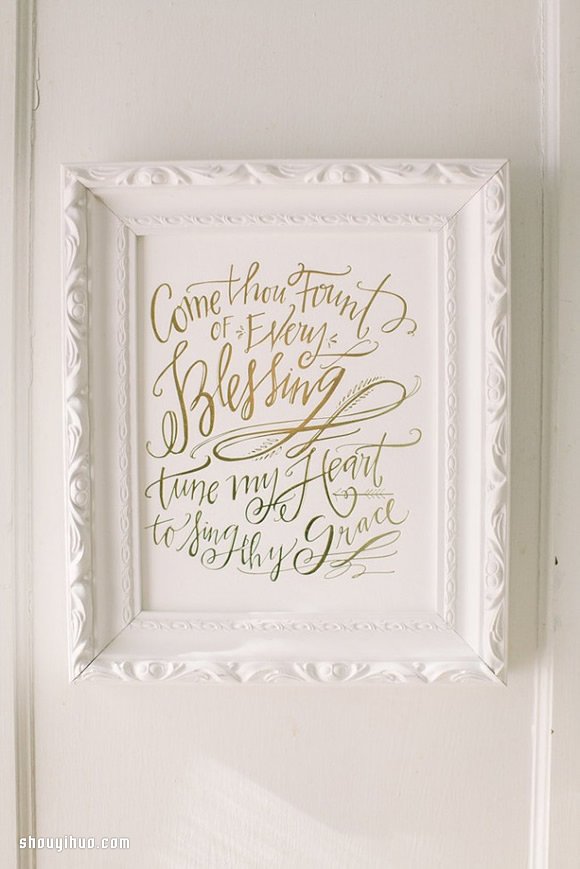 Come thou Fount
OF Every
Blessing
tune my Heart
to sing thy grace
shouyihuo.com